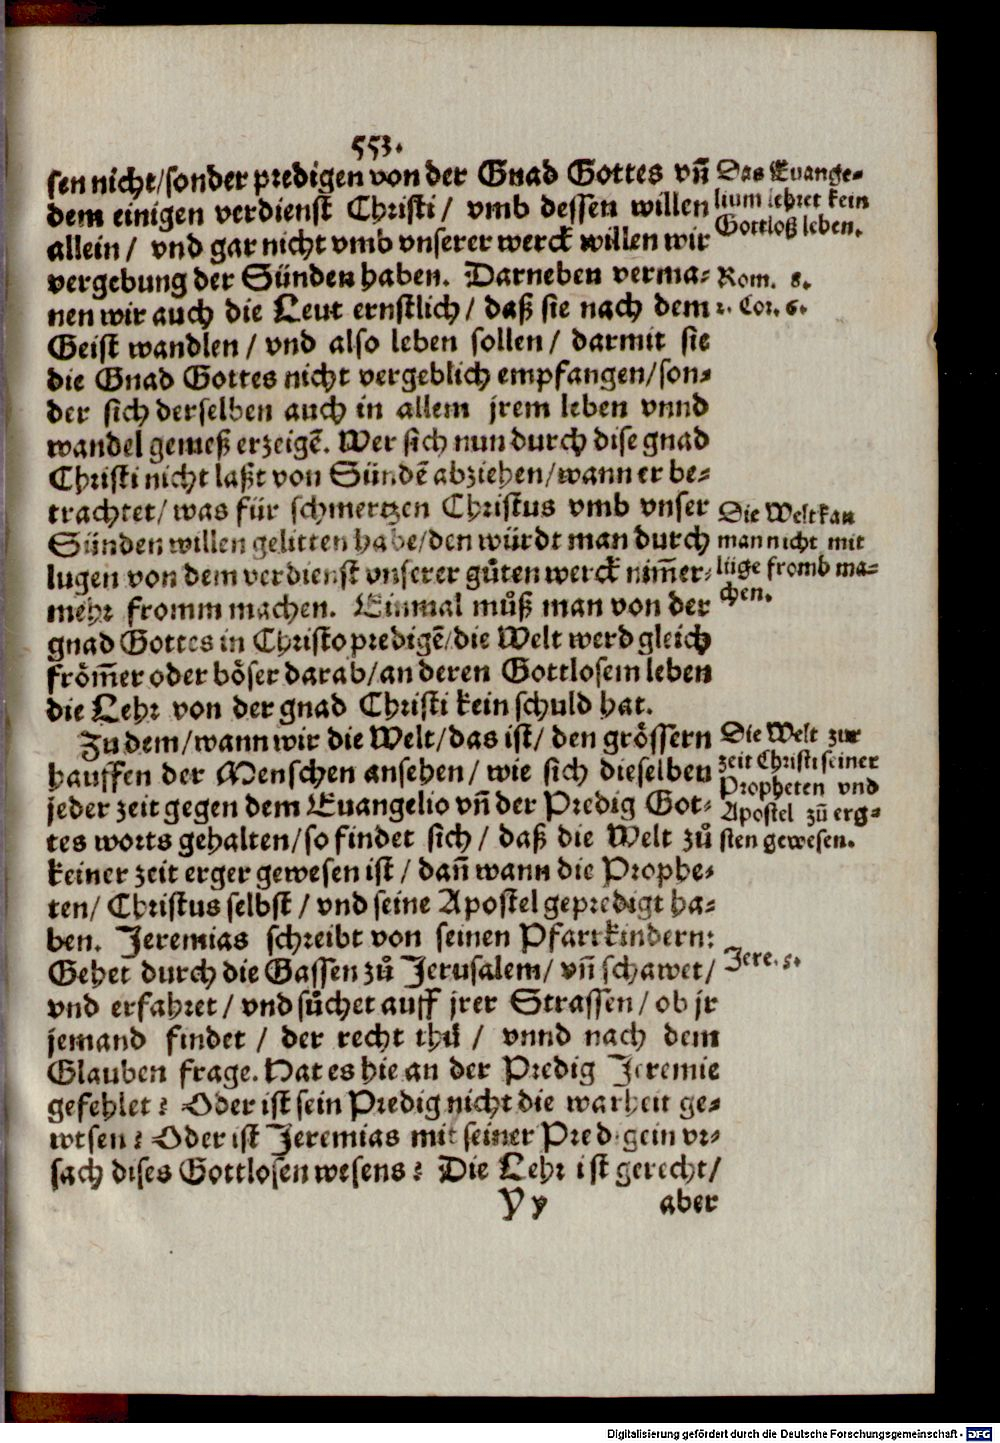 553.
sen nicht/sonder predigen von der Gnad Gottes vñ
dem einigen verdienst Christi/ vmb dessen willen
allein/ vnd gar nicht vmb vnserer werck willen wir
vergebung der Sünden haben. Darneben verma-
nen wir auch die Leut ernstlich/ daß sie nach dem
Geist wandlen/ vnd also leben sollen/ darmit sie
die Gnad Gottes nicht vergeblich empfangen/son-
der sich derselben auch in allem jrem leben vnnd
wandel gemeß erzeigẽ. Wer sich nun durch dise gnad
Christi nicht laßt von Sündẽ abziehen/wann er be-
trachtet/ was für schmertzen Christus vmb vnser
Sünden willen gelitten habe/den würdt man durch
lugen von dem verdienst vnserer gůten werck nim̃er-
mehr fromm machen. Einmal můß man von der
gnad Gottes in Christo predigẽ/die Welt werd gleich
from̃er oder böser darab/an deren Gottlosem leben
die Lehr von der gnad Christi kein schuld hat.
Zu dem/wann wir die Welt/das ist/ den grössern
hauffen der Menschen ansehen/ wie sich dieselben
jeder zeit gegen dem Euangelio vñ der Predig Got-
tes worts gehalten/so findet sich/ daß die Welt zů
keiner zeit erger gewesen ist/ dañ wann die Prophe-
ten/ Christus selbst/ vnd seine Apostel gepredigt ha-
ben. Jeremias schreibt von seinen Pfarrkindern:
Gehet durch die Gassen zů Jerusalem/ vñ schawet/
vnd erfahret/ vnd sůchet auff jrer Strassen/ ob jr
jemand findet/ der recht thů/ vnnd nach dem
Glauben frage. Hat es hie an der Predig Jeremie
gefehlet? Oder ist sein Predig nicht die warheit ge-
wesen? Oder ist Jeremias mit seiner Predig ein vr-
sach dises Gottlosen wesens? Die Lehr ist gerecht/
Yy aber
Das Euange-
lium lehret kein
Gottloß leben.
Rom. 8.
2. Cor. 6.
Die Welt kan
man nicht mit
lüge fromb ma-
chen.
Die Welt zur
zeit Christi seiner
Propheten vnd
Apostel zů erg-
sten gewesen.
Jere. 5.
Digitalisierung gefördert durch die Deutsche Forschungsgemeinschaft - DFG